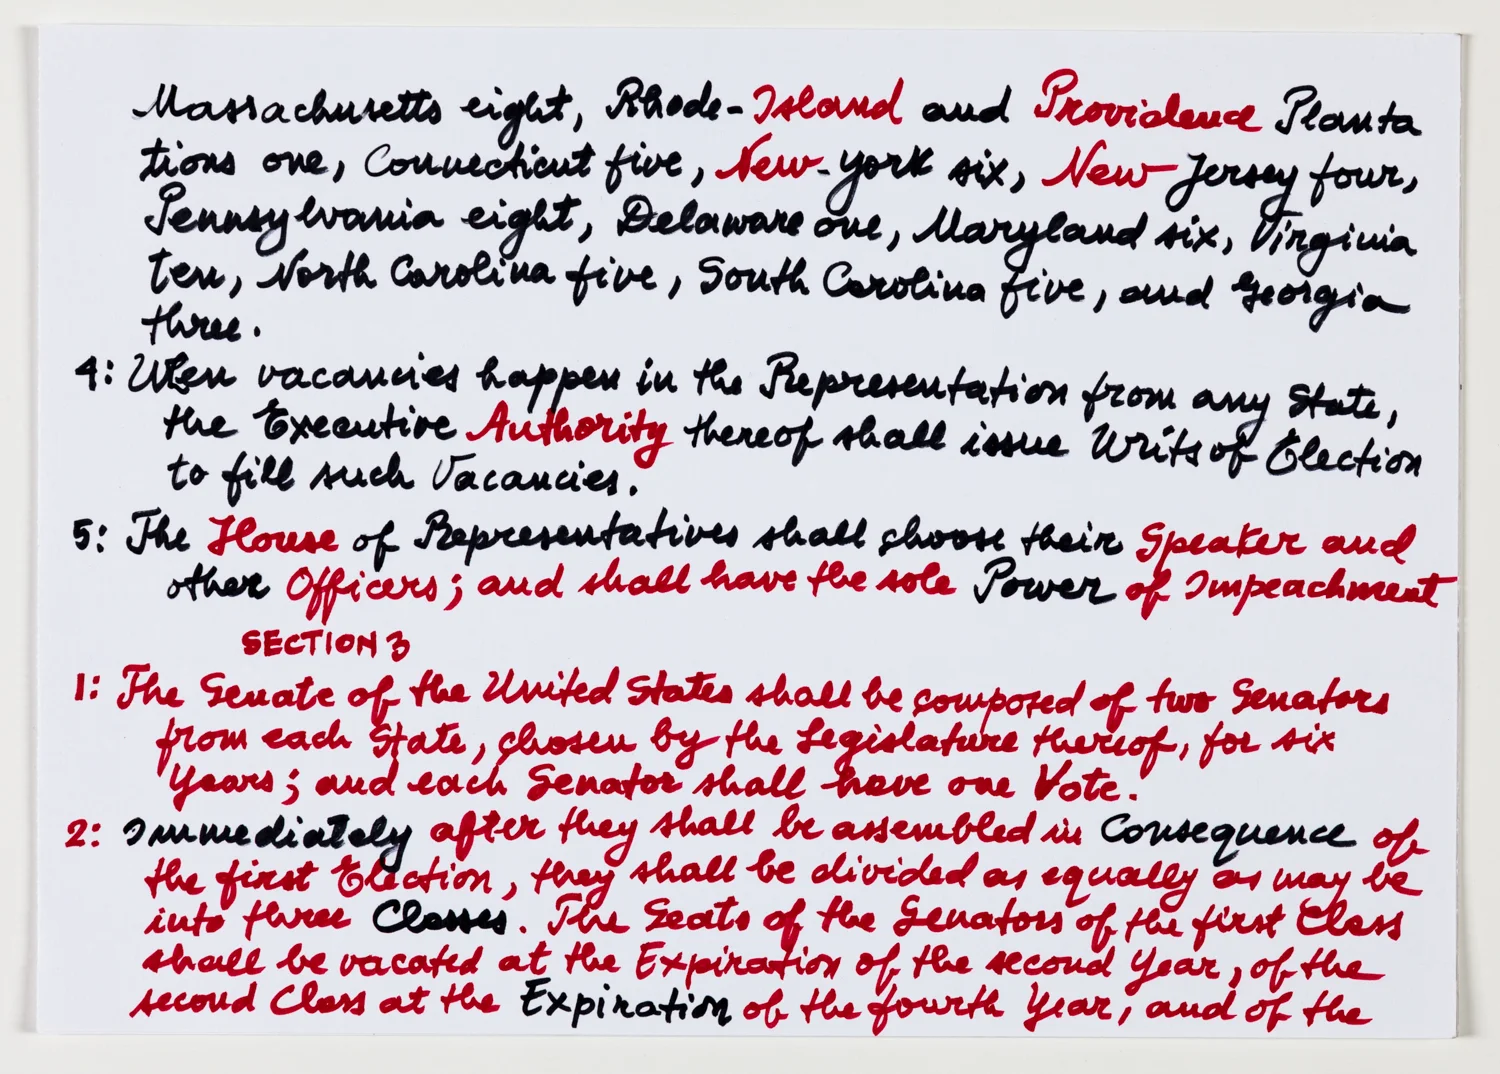 Massachusetts eight, Rhode-Island and Providence Planta
tions one, Connecticut five, New-york six, New Jersey four,
Pennsylvania eight, Delaware one, Maryland six, Virginia
ten, North Carolina five, South Carolina five, and Georgia
three.
4: When vacancies happen in the Representation from any State,
the Executive Authority thereof shall issue Writs of Election
to fill such Vacancies.
5: The House of Representatives shall choose their Speaker and
other Officers; and shall have the sole Power of Impeachment
SECTION 3
1: The Senate of the United States shall be composed of two Senators
from each State, chosen by the Legislature thereof, for six
Years; and each Senator shall have one Vote.
2: Immediately after they shall be assembled in Consequence of
the first Election, they shall be divided as equally as may be
into three Classes. The Seats of the Senators of the first Class
shall be vacated at the Expiration of the second Year, of the
second Class at the Expiration of the fourth Year, and of the